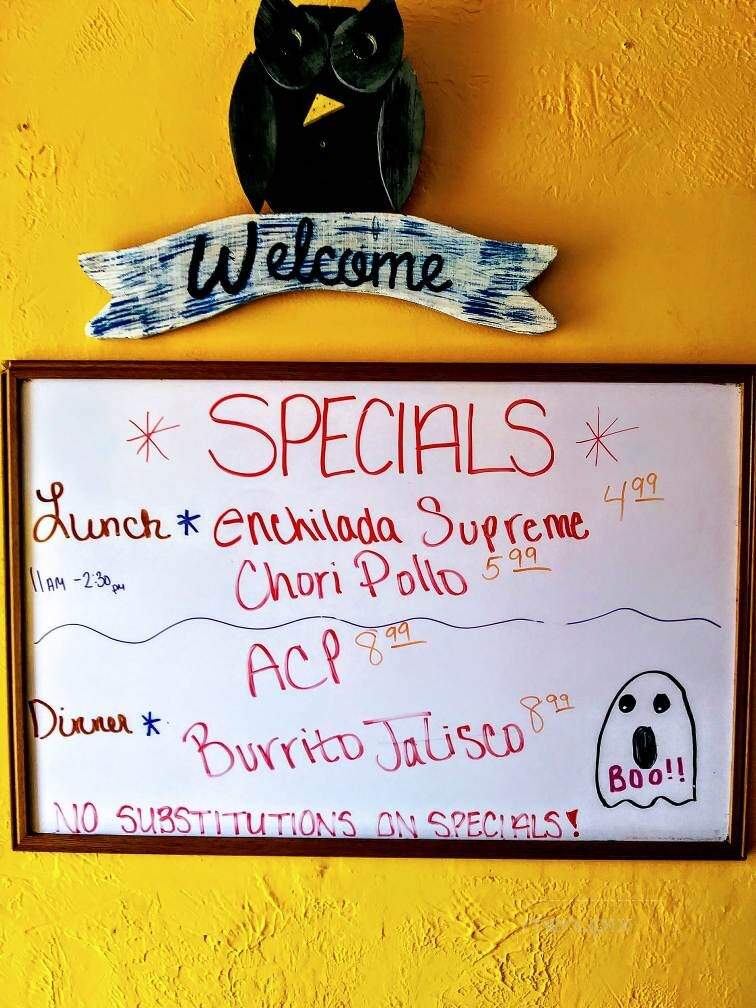 Welcome
* SPECIALS *
Lunch * enchilada Supreme 4.99
11 AM - 2:30 pm Chori Pollo 5.99
ACP 8.99
Dinner * Burrito Jalisco 8.99
BOO!!
NO SUBSTITUTIONS ON SPECIALS!